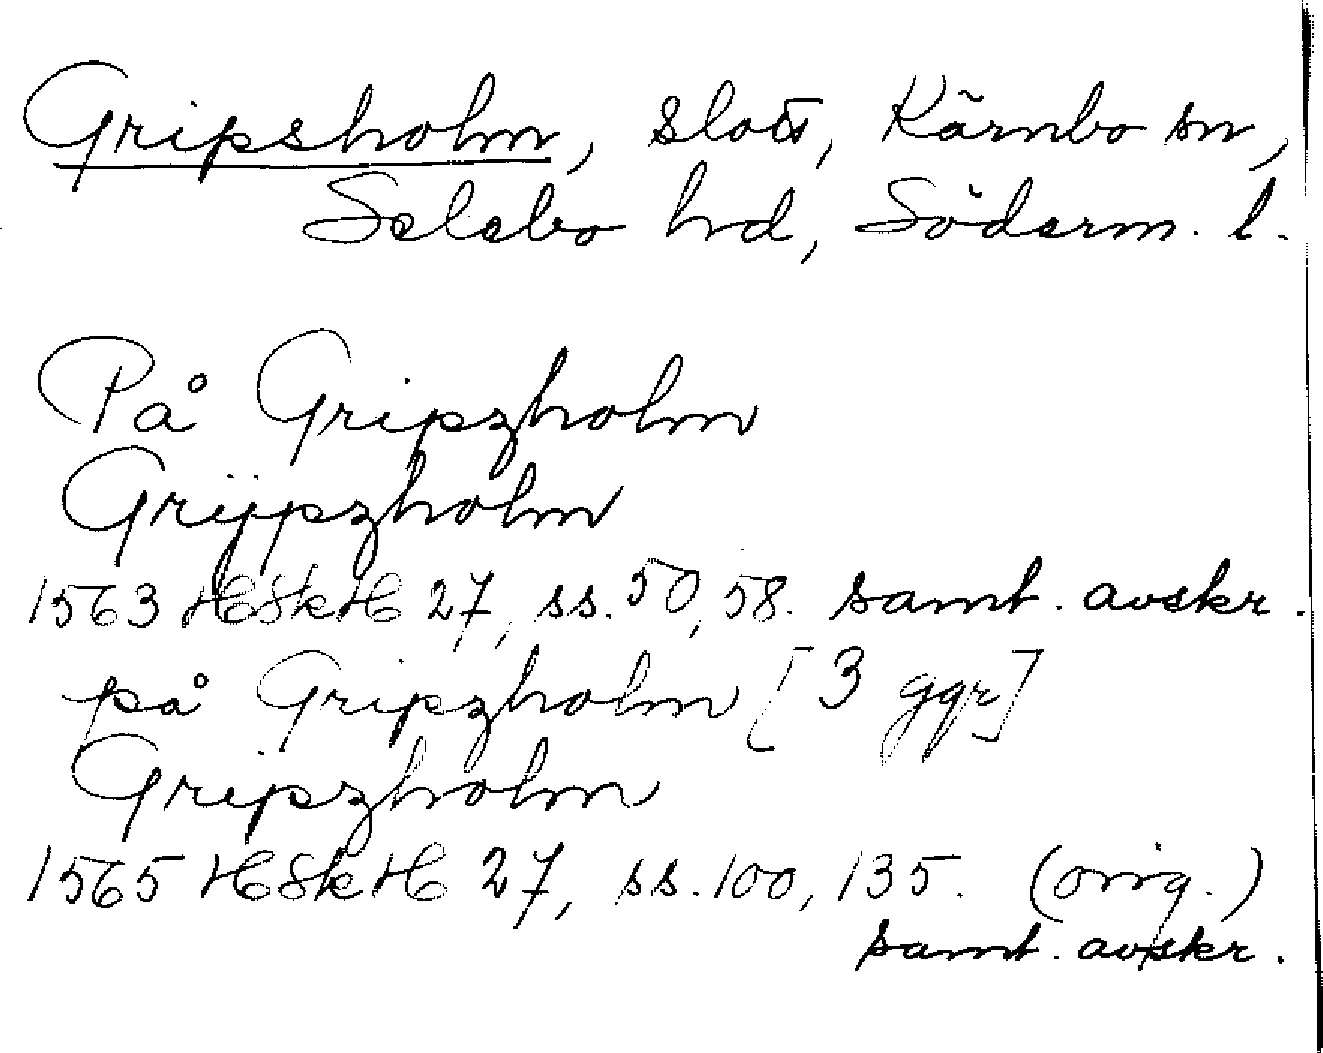 Gripsholm, slott, Kärnbo sn,
Selebo hd, Söderm. l.
På Gripzholm
Grijpzholm
1563 HSkH 27, ss. 50, 58. samt. avskr.
på Gripzholm [3 ggr]
Gripzholm
1565 HSkH 27, ss. 100, 135. (orig.)
samt. avskr.